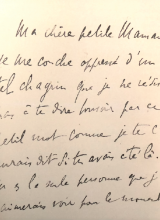 Ma chère petite Maman
Je me couche oppressé d'un
tel chagrin que je ne résiste
pas à te dire bonsoir par ce
petit mot comme je te l'
aurais dit si tu avais été là.
la seule personne que j'
aimerais voir par le moment